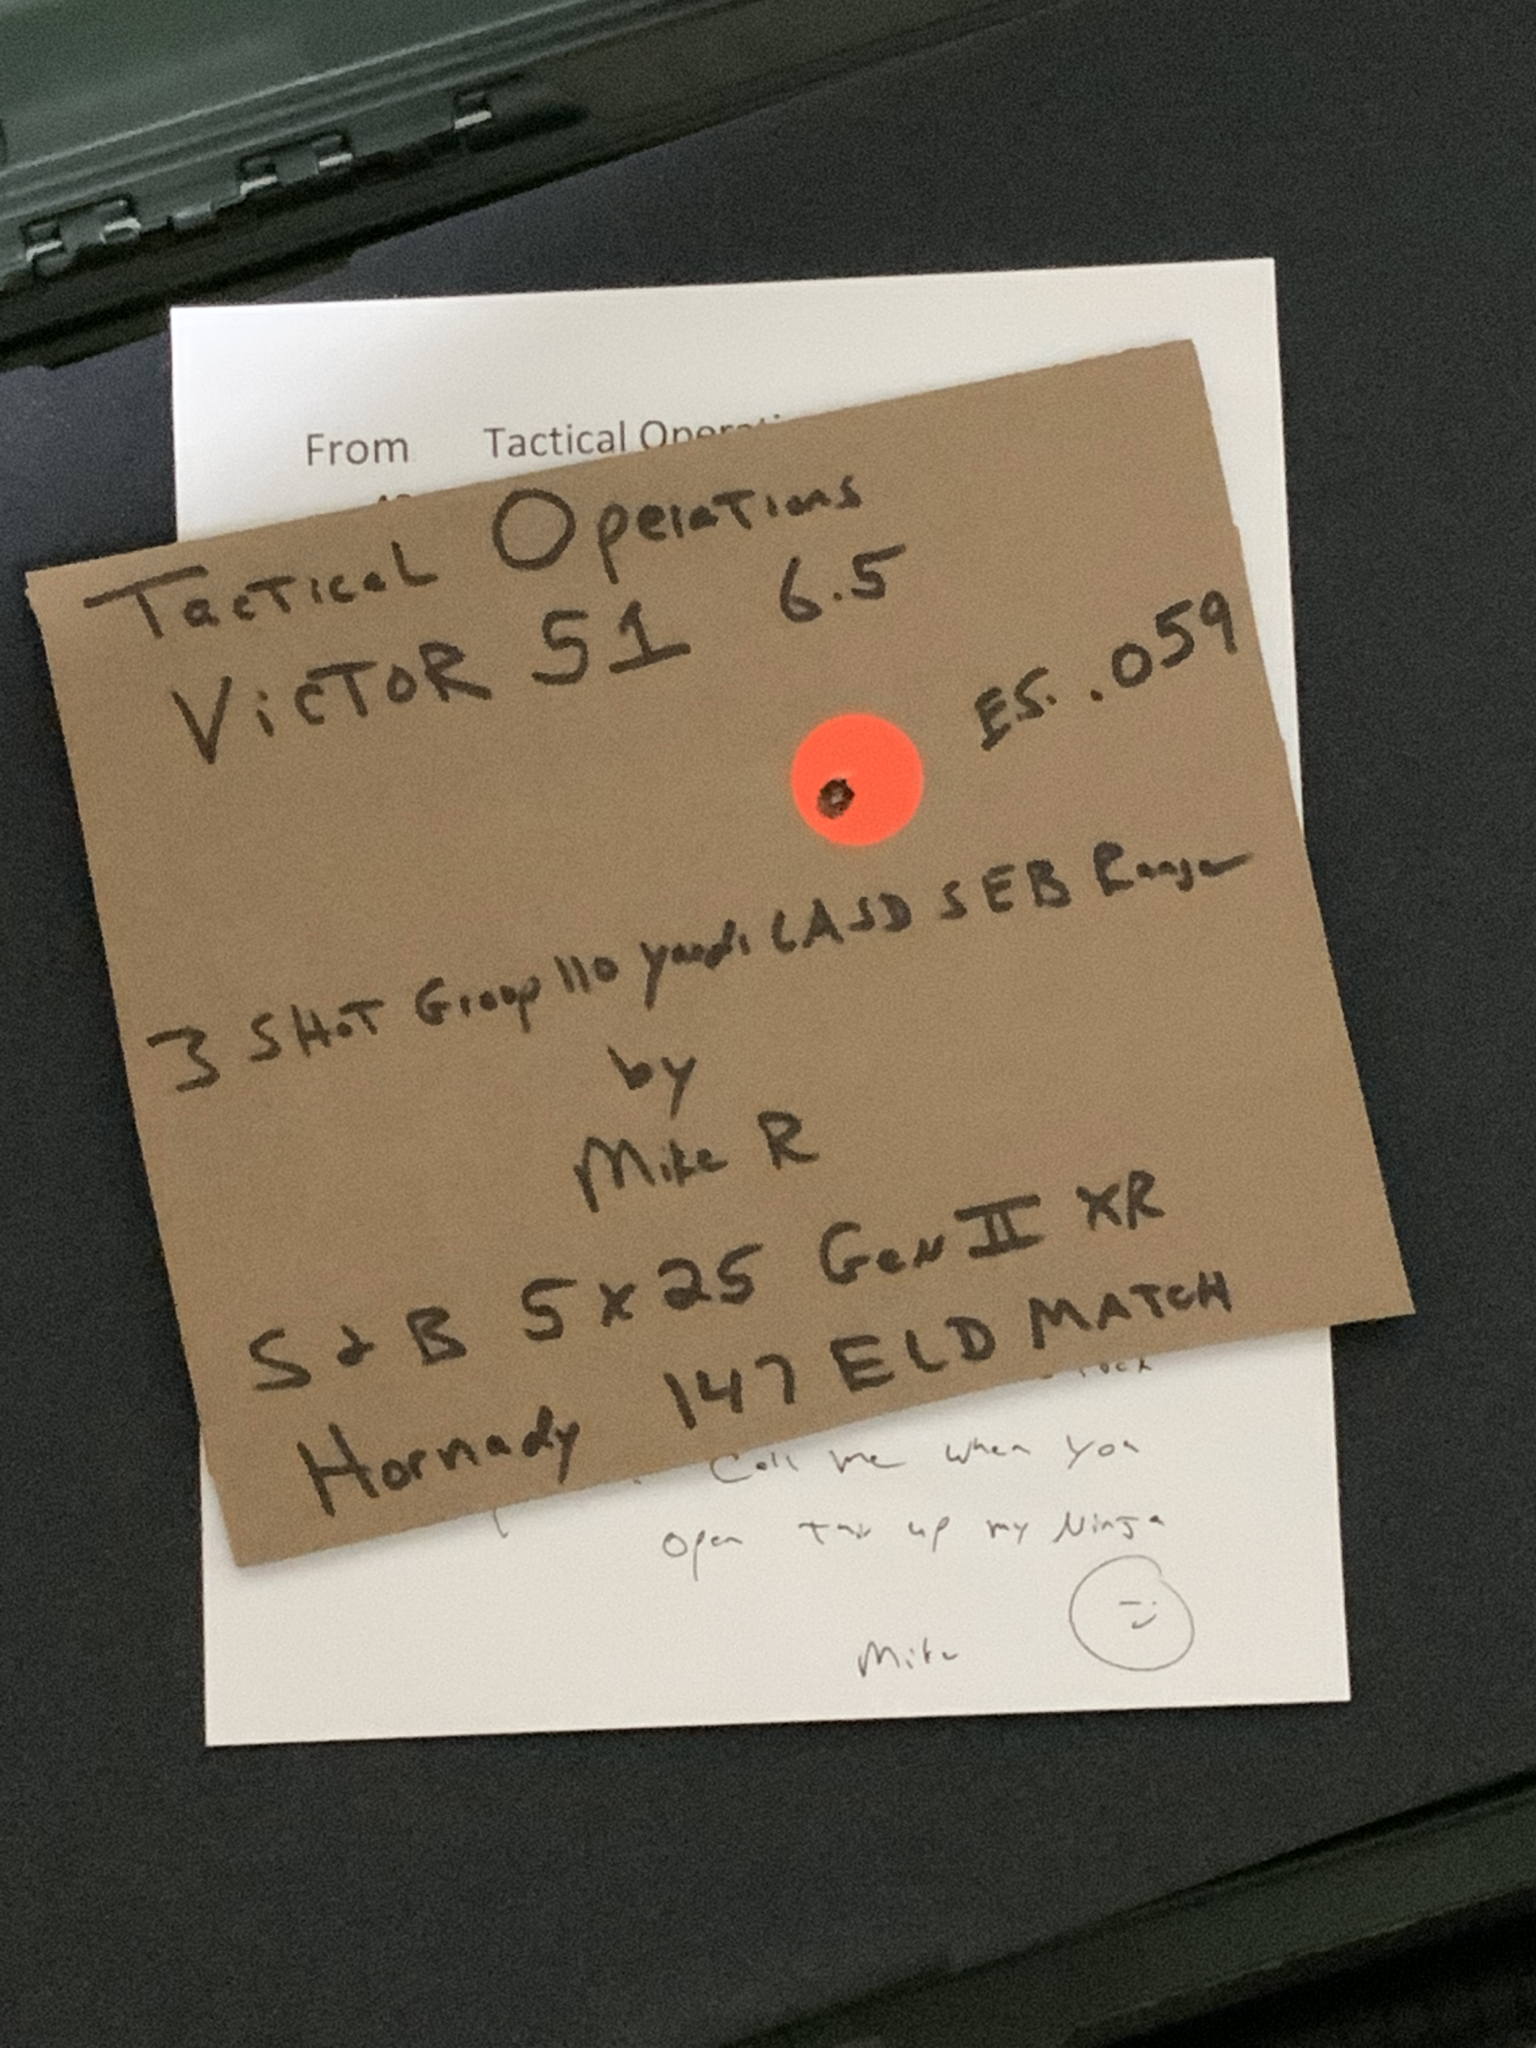 From Tactical
Tactical Operations
Victor 51 6.5
ES. .059
3 SHOT Group 110 yards LASD SEB Range
by
Mike R
S & B 5x25 Gen II XR
Hornady 147 ELD MATCH
Call me when you
open this up my Ninja
Mike